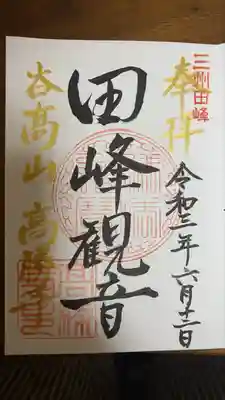 三州田峰
奉拝
令和三年六月十二日
田峰観音
谷高山 高勝寺